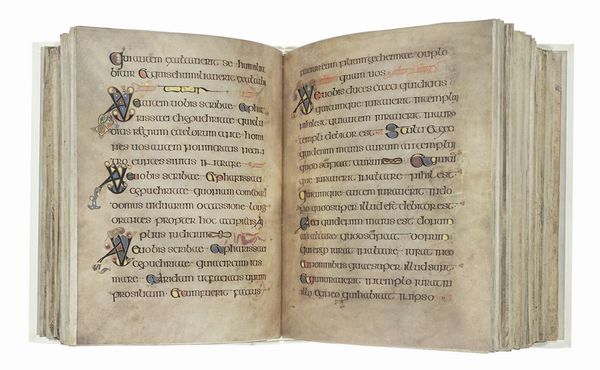 Qui autem exaltauerit se humilia
bitur Et qui se humiliauerit exaltabi
Vae autem uobis scribae et phar
issaei chypochritae qui clu
ditis regnum caelorum ante homi
nes uos autem non intratis nec in
tro euntes sinitis intrare
Vae uobis scribae et pharissaei
chypochritae quoniam comditis
domus uiduarum occassione longa
orantes propter hoc accipietis
plius iudicium
Vae uobis scribae et pharissaei
chypochritae qui circuitis
mare et aridam ut faciatis unum
prosilitum et cum fuerit factus
eum filium gechennae duplo
quam uos
Vae uobis duces caeci qui dicitis
quicumque iurauerit in templo
nihil est qui autem iurauerit in auro
templi debitor est Stulti et caeci
quid enim maius aurum an templum
quod scificat aurum Et qui
cumque iurauerit in altare nihil est
quicumque autem iurauerit in do
no quod super illud est debitor est
Caeci quid enim maius est donum
an altare quod scificat donum
qui ergo iurat in altare iurat in eo
et in omnibus quae super illud sunt
Et qui iurauerit in templo iurat in
illo et in eo qui habitat in ipso